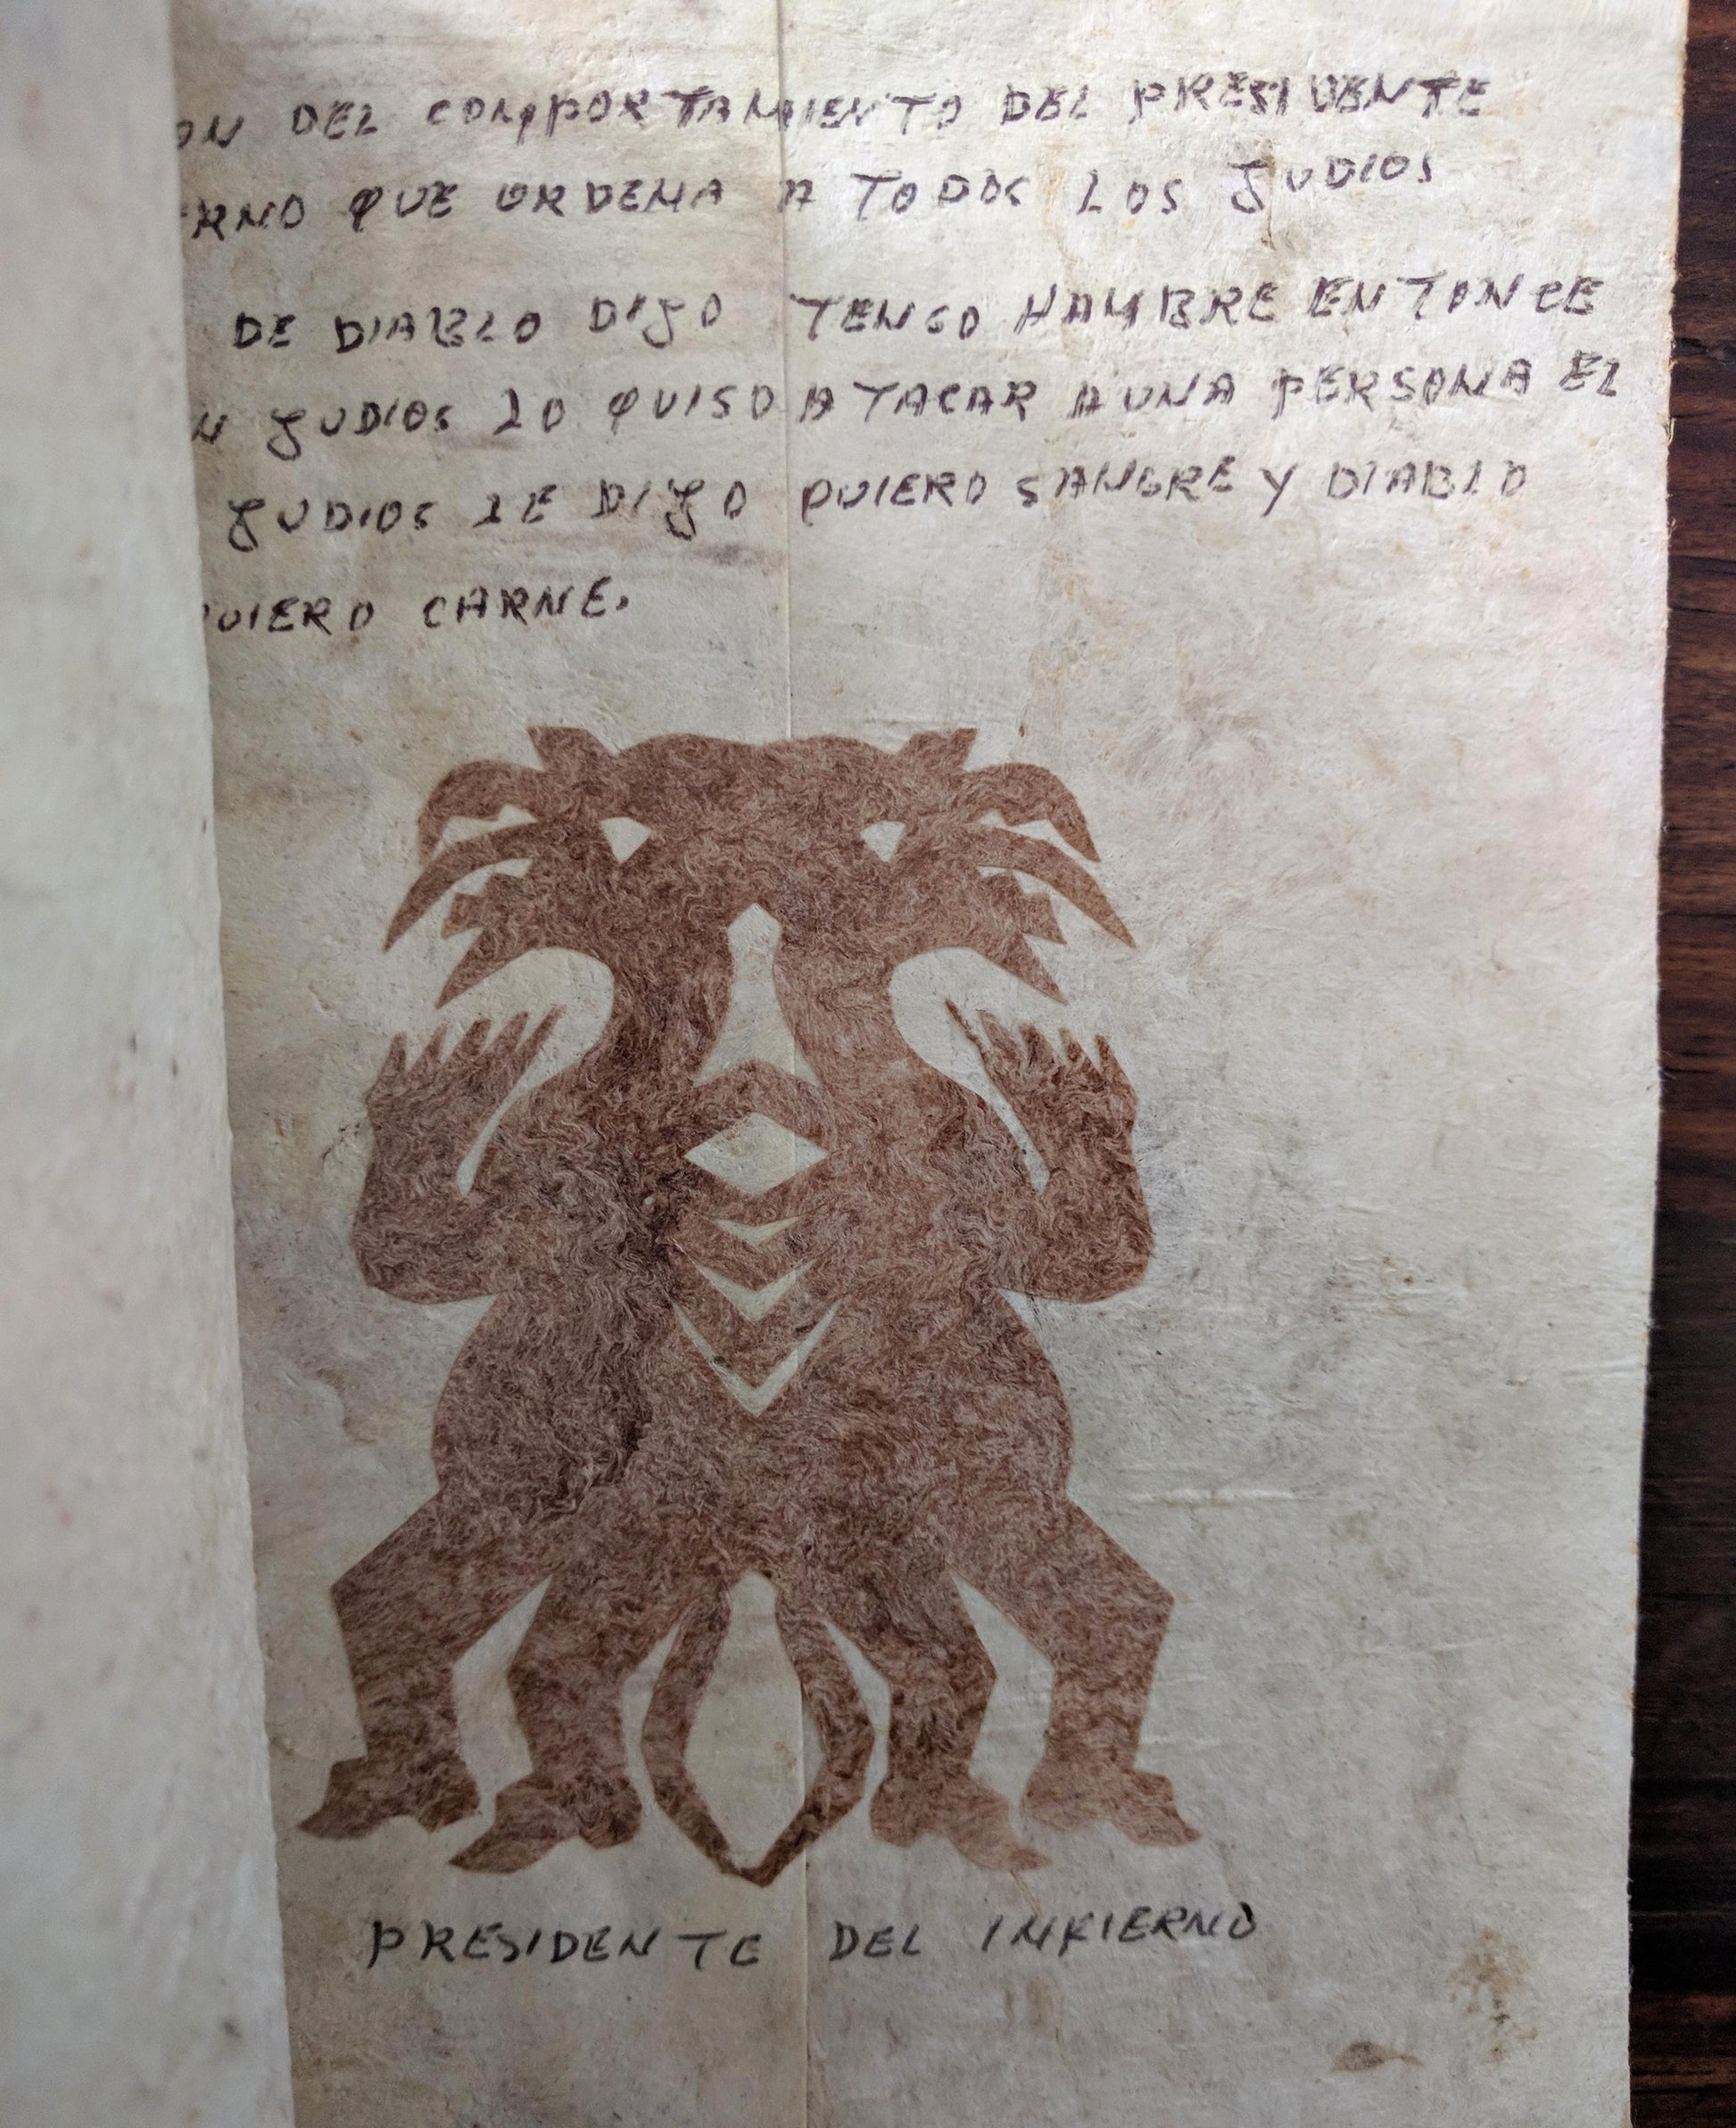 ON DEL COMPORTAMIENTO DEL PRESIDENTE
ERNO QUE ORDENA A TODOS LOS JUDIOS
DE DIABLO DIJO TENGO HAMBRE ENTONCE
N JUDIOS LO QUISO ATACAR A UNA PERSONA EL
JUDIOS LE DIJO QUIERO SANGRE Y DIABLO
QUIERO CARNE.
PRESIDENTE DEL INFIERNO